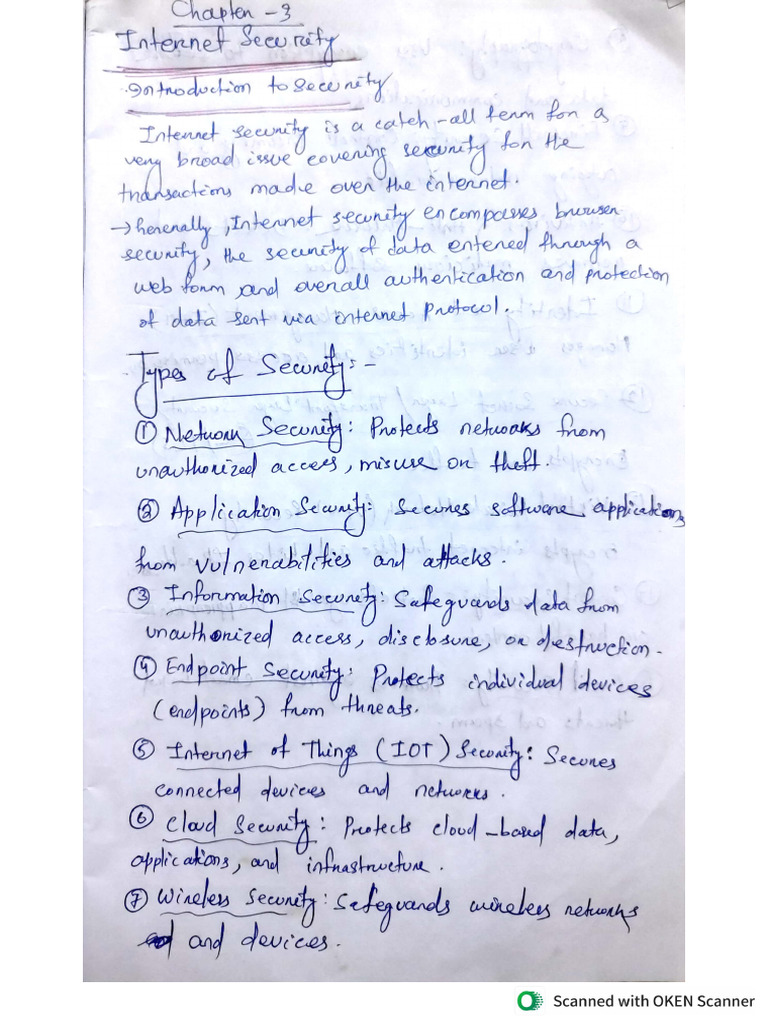 Chapter - 3
Internet Security
Introduction to Security
Internet security is a catch-all term for a
very broad issue covering security for the
transactions made over the internet.
→ Generally, Internet security encompasses browser
security, the security of data entered through a
web form, and overall authentication and protection
of data sent via internet Protocol.
Types of Security: -
① Network Security: Protects networks from
unauthorized access, misuse or theft.
② Application Security: Secures software applications
from vulnerabilities and attacks.
③ Information Security: Safeguards data from
unauthorized access, disclosure, or destruction.
④ Endpoint Security: Protects individual devices
(endpoints) from threats.
⑤ Internet of Things (IOT) Security: Secures
connected devices and networks.
⑥ Cloud Security: Protects cloud-based data,
applications, and infrastructure.
⑦ Wireless Security: Safeguards wireless networks
and devices.
Scanned with OKEN Scanner